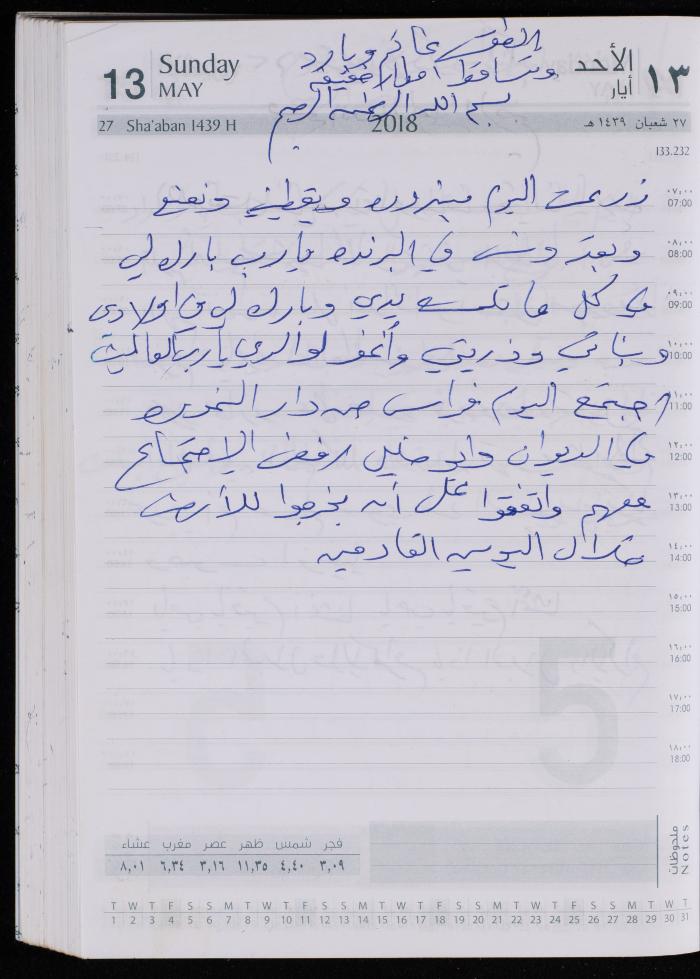 الطقس غائم وبارد
وتساقط امطار خفيفة
بسم الله الرحمن الرحيم
13 Sunday MAY
الأحد أيار ١٣
27 Sha'aban 1439 H 2018 ٢٧ شعبان ١٤٣٩ هـ
133.232
زرعت اليوم بندوره ويقطين ونعنع
وبقدونس في البرنده يارب بارك لي
في كل ما تكسب يدي وبارك لي في اولادي
وبناتي وذريتي وأغفر لوالدي يارب العالمين
اجتمع اليوم فراس من دار
في الديوان وابو خليل رفض الاجتماع
معهم واتفقوا على أن يخرجوا للأرض
خلال اليومين القادمين
٠٧,٠٠ 07:00
٠٨,٠٠ 08:00
٠٩,٠٠ 09:00
١٠,٠٠ 10:00
١١,٠٠ 11:00
١٢,٠٠ 12:00
١٣,٠٠ 13:00
١٤,٠٠ 14:00
١٥,٠٠ 15:00
١٦,٠٠ 16:00
١٧,٠٠ 17:00
١٨,٠٠ 18:00
ملحوظات
Notes
فجر شمس ظهر عصر مغرب عشاء
٣,٠٩ ٤,٤٠ ١١,٣٥ ٣,١٦ ٦,٣٤ ٨,٠١
T W T F S S M T W T F S S M T W T F S S M T W T F S S M T W T
1 2 3 4 5 6 7 8 9 10 11 12 13 14 15 16 17 18 19 20 21 22 23 24 25 26 27 28 29 30 31